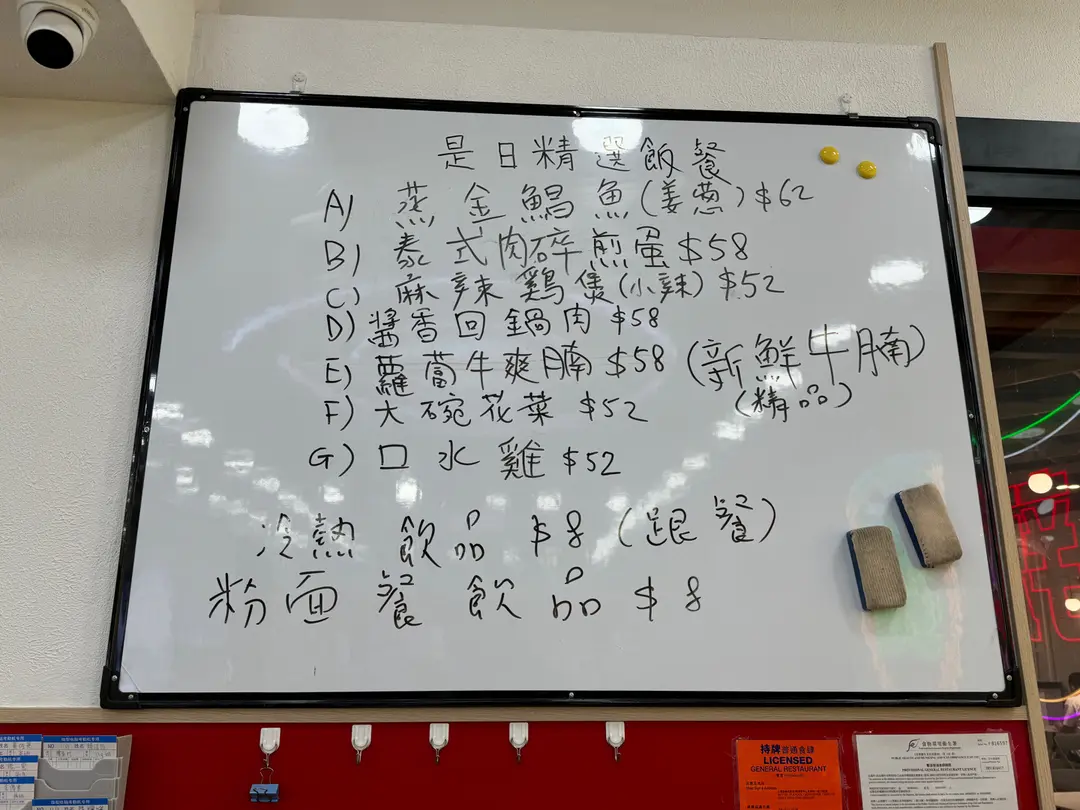 是日精選飯餐
A) 蒸金鯧魚(姜葱) $62
B) 泰式肉碎煎蛋 $58
C) 麻辣鷄煲(小辣) $52
D) 醬香回鍋肉 $58
E) 蘿蔔牛爽腩 $58 (新鮮牛腩)
(精品)
F) 大碗花菜 $52
G) 口水雞 $52
冷熱飲品 $8 (跟餐)
粉面餐飲品 $8
持牌普通食肆
LICENSED
GENERAL RESTAURANT